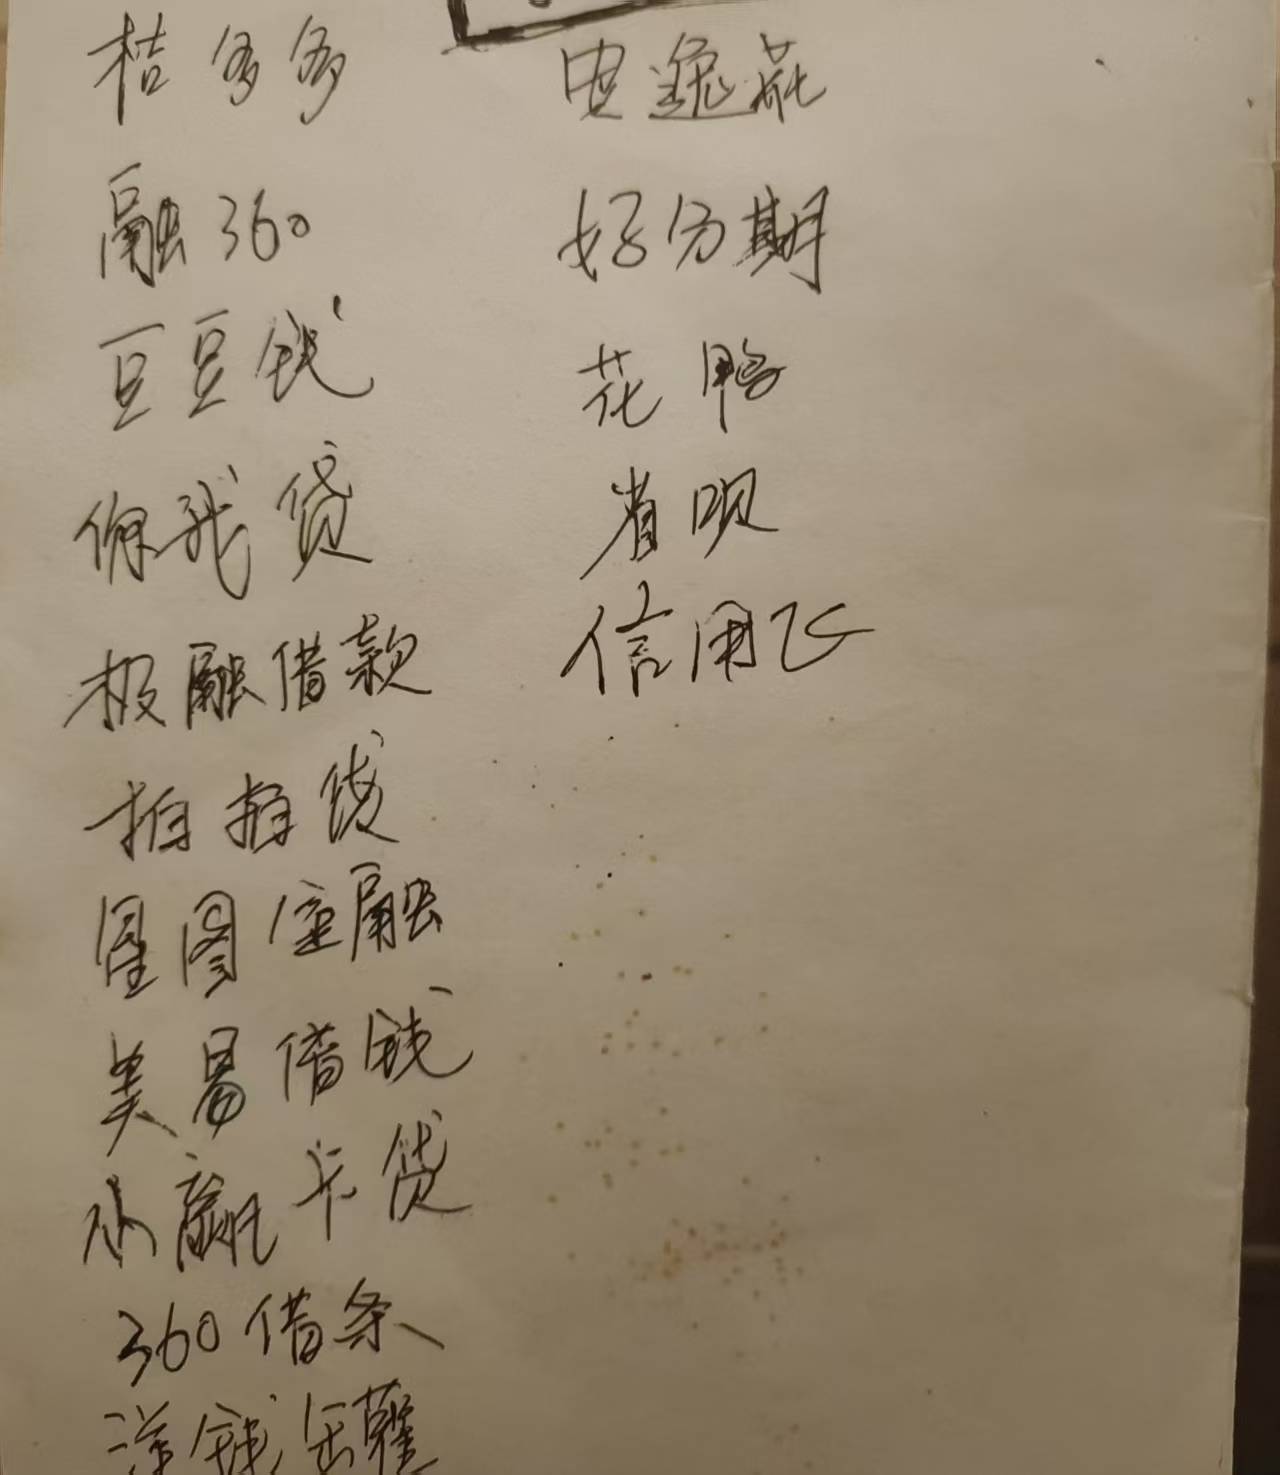 桔多多
融360
豆豆钱
你我贷
极融借款
拍拍贷
星图金融
美易借钱
小赢卡贷
360借条
洋钱罐
好分期
花鸭
省呗
信用飞